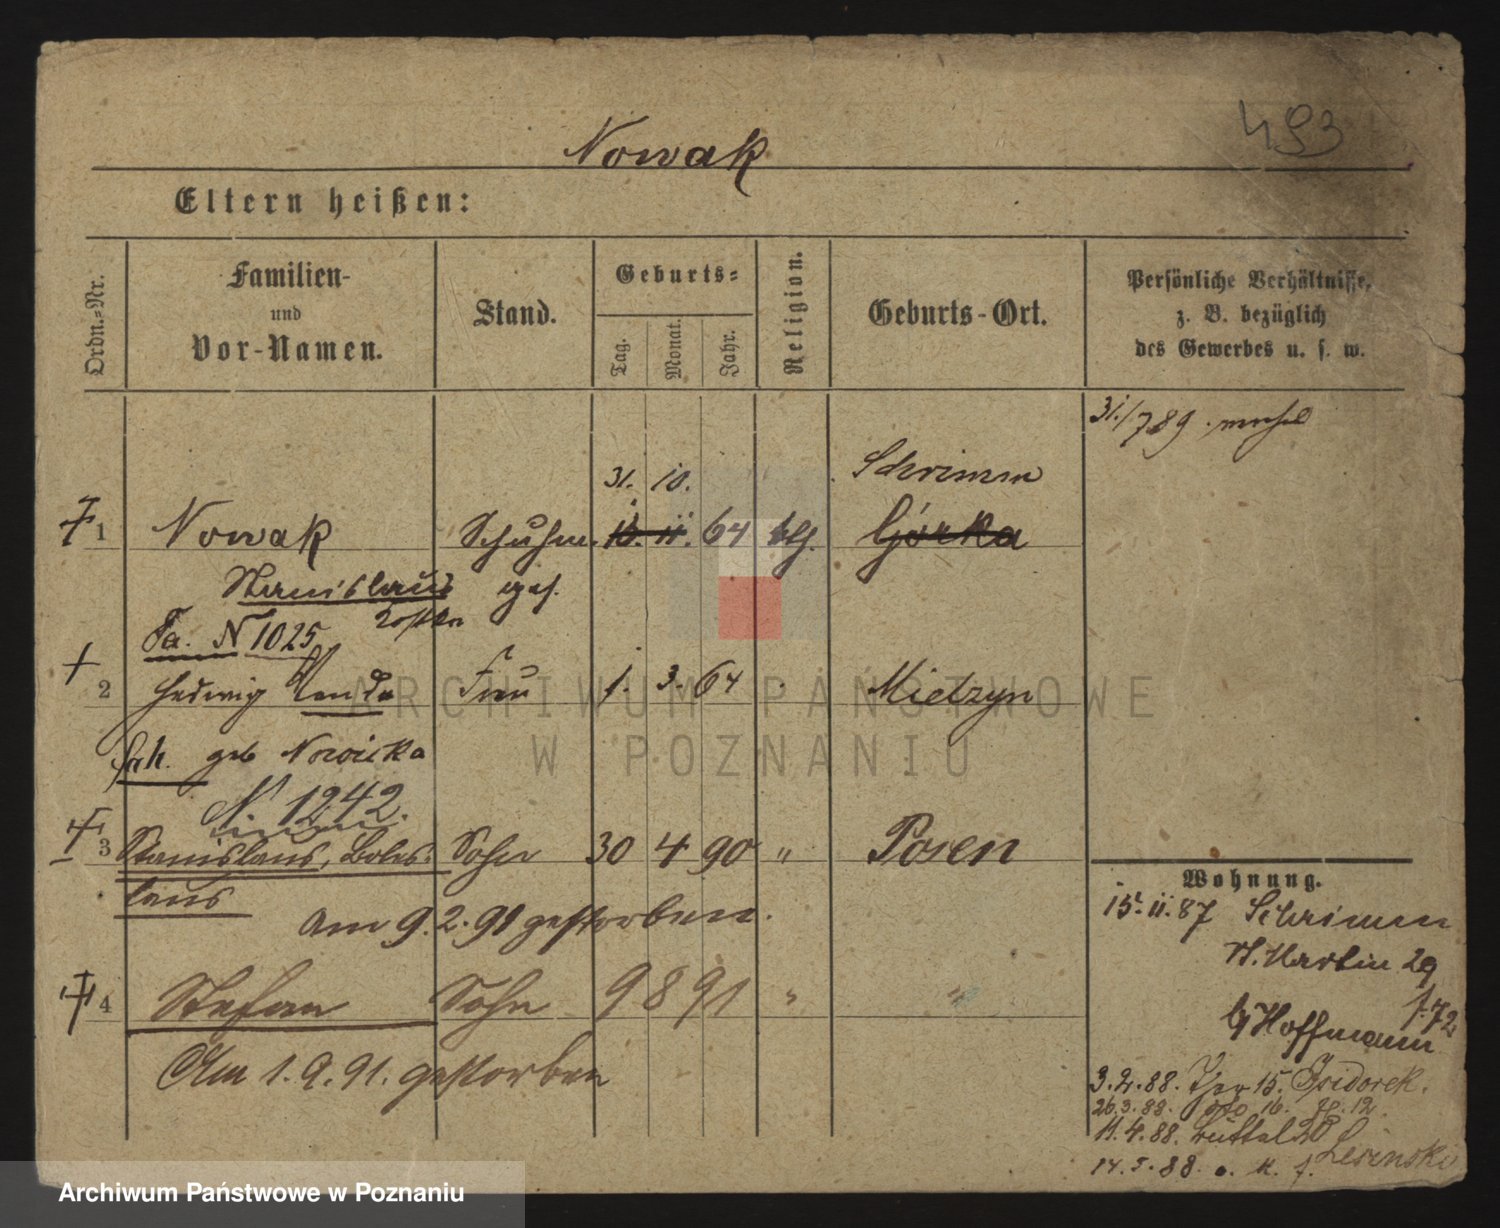 493
Nowak
Eltern heißen:
Ordn.-Nr.
Familien-
und
Vor-Namen.
Stand.
Geburts-
Tag.
Monat.
Jahr.
Religion.
Geburts-Ort.
Persönliche Verhältnisse,
z. B. bezüglich
des Gewerbes u. s. w.
31./7 89.
31. 10. Schrimm
1 Nowak Schuhm. 64 Górka
Stanislaus
Fa. N 1025
2 Hedwig Frau 1. 3. 64 Mielzyn
geb Nowicka
N. 1242.
3 Stanislaus, Boles- Sohn 30 4 90 " Posen
laus
Am 9. 2. 91 gestorben.
4 Stefan Sohn 9 8 91 " "
Am 1. 9. 91. gestorben
Wohnung.
15. 11. 87 Schrimm
St. Martin 29
Hoffmann f. 72
3. 2. 88. 15.
26. 3. 88. 16. 12.
11. 4. 88.
14. 5. 88.
ARCHIWUM PAŃSTWOWE
W POZNANIU
Archiwum Państwowe w Poznaniu